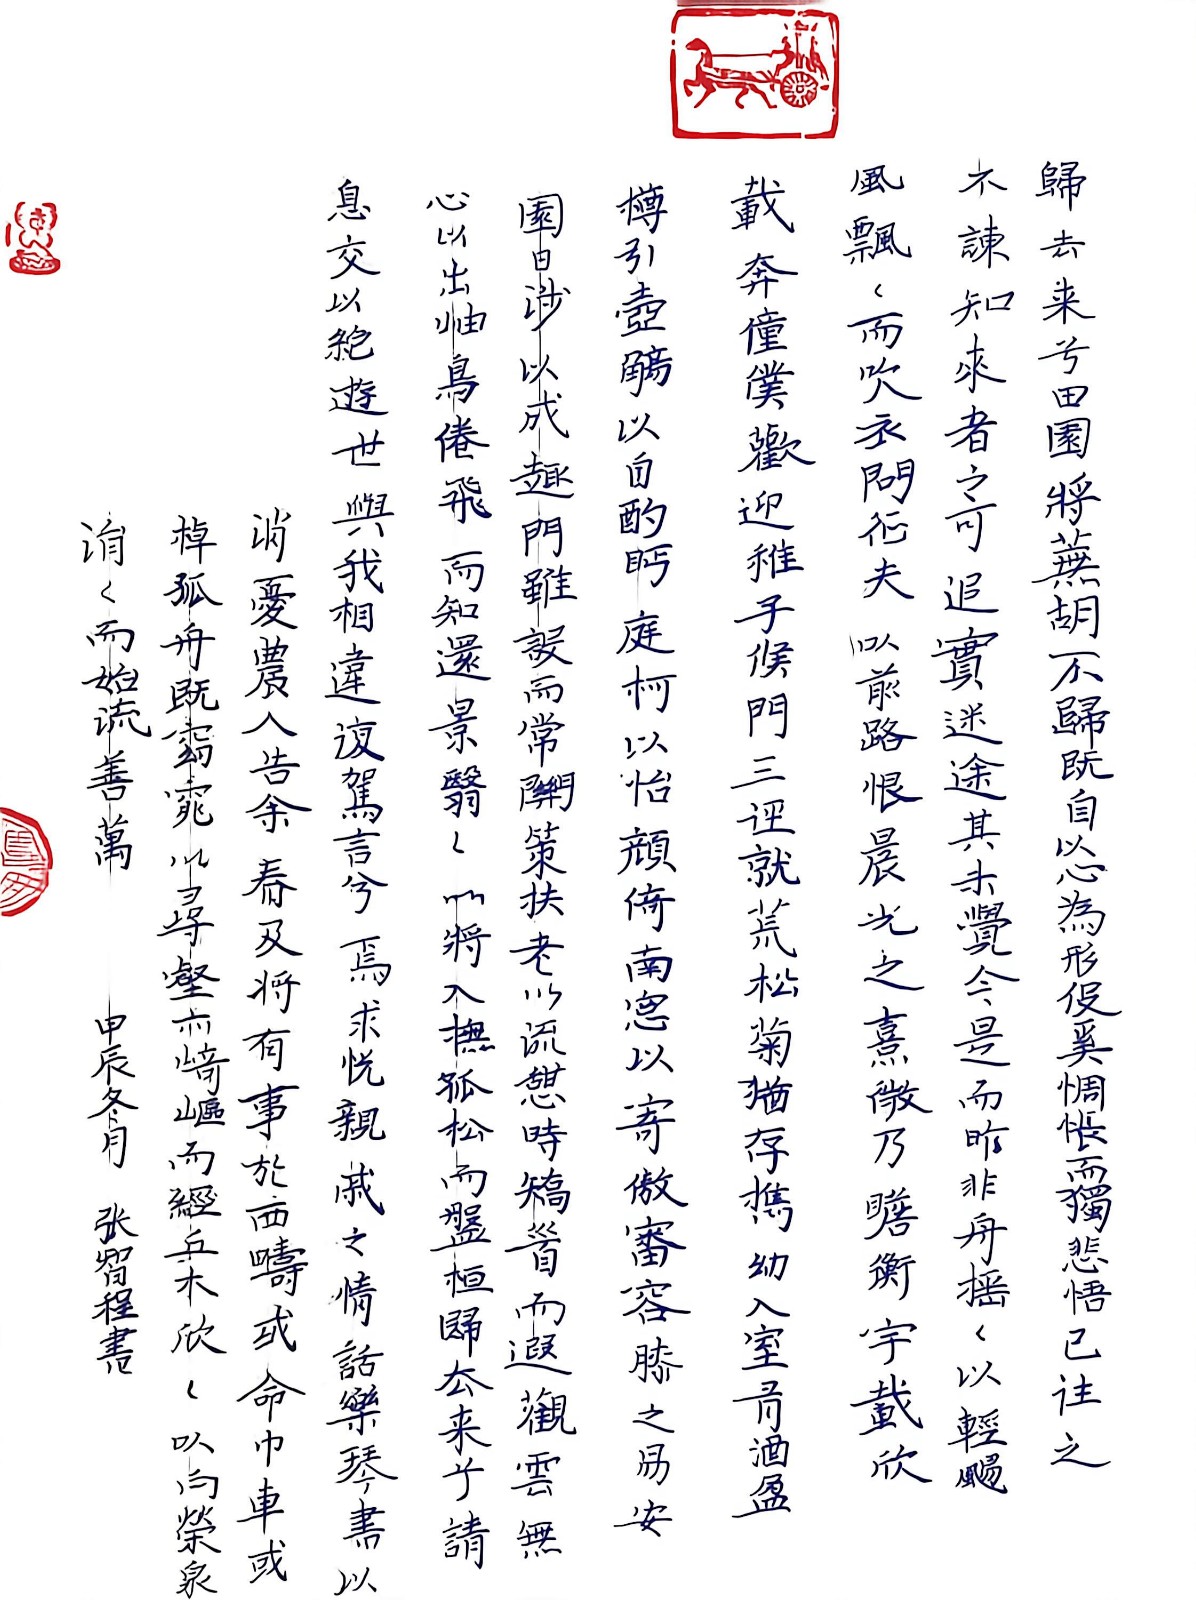 歸去来兮田園將蕪胡不歸既自以心為形役奚惆悵而獨悲悟已往之
不諫知來者之可追實迷途其未覺今是而昨非舟摇〱以輕颺
風飄〱而吹衣問征夫以前路恨晨光之熹微乃瞻衡宇載欣
載奔僮僕歡迎稚子候門三逕就荒松菊猶存携幼入室有酒盈
樽引壺觴以自酌眄庭柯以怡顔倚南窓以寄傲審容膝之易安
園日涉以成趣門雖設而常關策扶老以流憩時矯首而遐觀雲無
心以出岫鳥倦飛而知還景翳〱以將入撫孤松而盤桓歸去来兮請
息交以絶遊世與我相違復駕言兮焉求悦親戚之情話樂琴書以
消憂農人告余春及将有事於西疇或命巾車或
棹孤舟既窈窕以尋壑亦崎嶇而經丘木欣〱以向榮泉
涓〱而始流善萬 甲辰冬月 张智程書